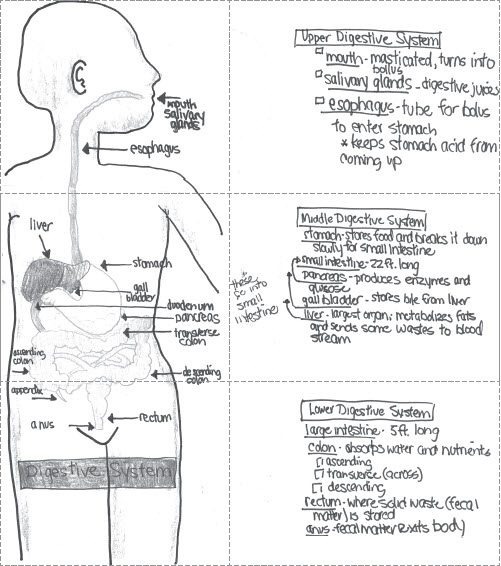 mouth
salivary
glands
esophagus
liver
stomach
gall
bladder
duodenum
pancreas
transverse
colon
ascending
colon
descending
colon
appendix
anus
rectum
Digestive System
Upper Digestive System
mouth - masticated, turns into
bollus
salivary glands - digestive juices
esophagus - tube for bolus
to enter stomach
* keeps stomach acid from
coming up
Middle Digestive System
stomach - stores food and breaks it down
slowly for small intestine
small intestine - 22 ft. long
pancreas - produces enzymes and
glucose
gall bladder - stores bile from liver
liver - largest organ; metabolizes fats
and sends some wastes to blood
stream
* these
go into
small
intestine
Lower Digestive System
large intestine - 5 ft. long
colon - absorbs water and nutrients
ascending
transverse (across)
descending
rectum - where solid waste (fecal
matter) is stored
anus - fecal matter exits body